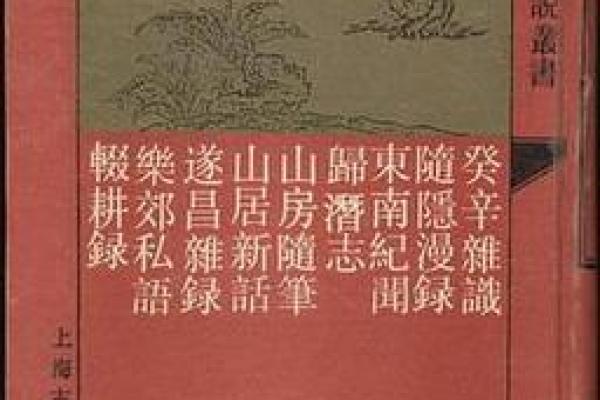 說叢書
癸辛雜識
隨隱漫録
東南紀聞
歸潛志
山房隨筆
山居新話
遂昌雜録
樂郊私語
輟耕録
上海古